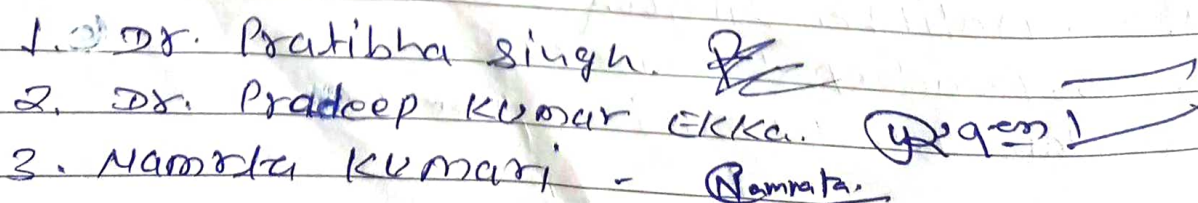 1. Dr. Pratibha Singh.
2. Dr. Pradeep Kumar Ekka.
3. Namrata Kumari - Namrata.